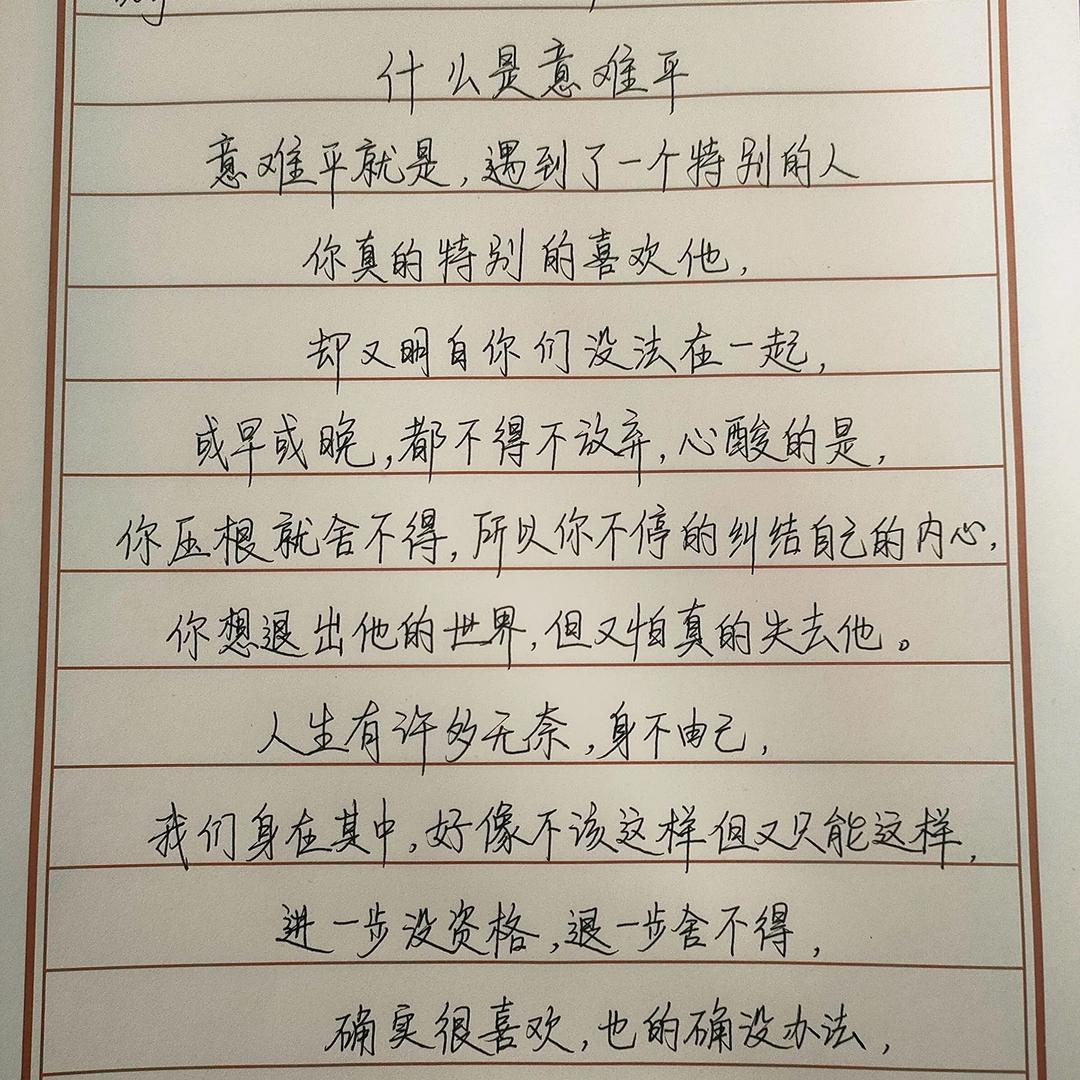 什么是意难平
意难平就是,遇到了一个特别的人
你真的特别的喜欢他,
却又明自你们没法在一起,
或早或晚,都不得不放弃,心酸的是,
你压根就舍不得,所以你不停的纠结自己的内心,
你想退出他的世界,但又怕真的失去他。
人生有许多无奈,身不由己,
我们身在其中,好像不该这样但又只能这样,
进一步没资格,退一步舍不得,
确实很喜欢,也的确没办法,